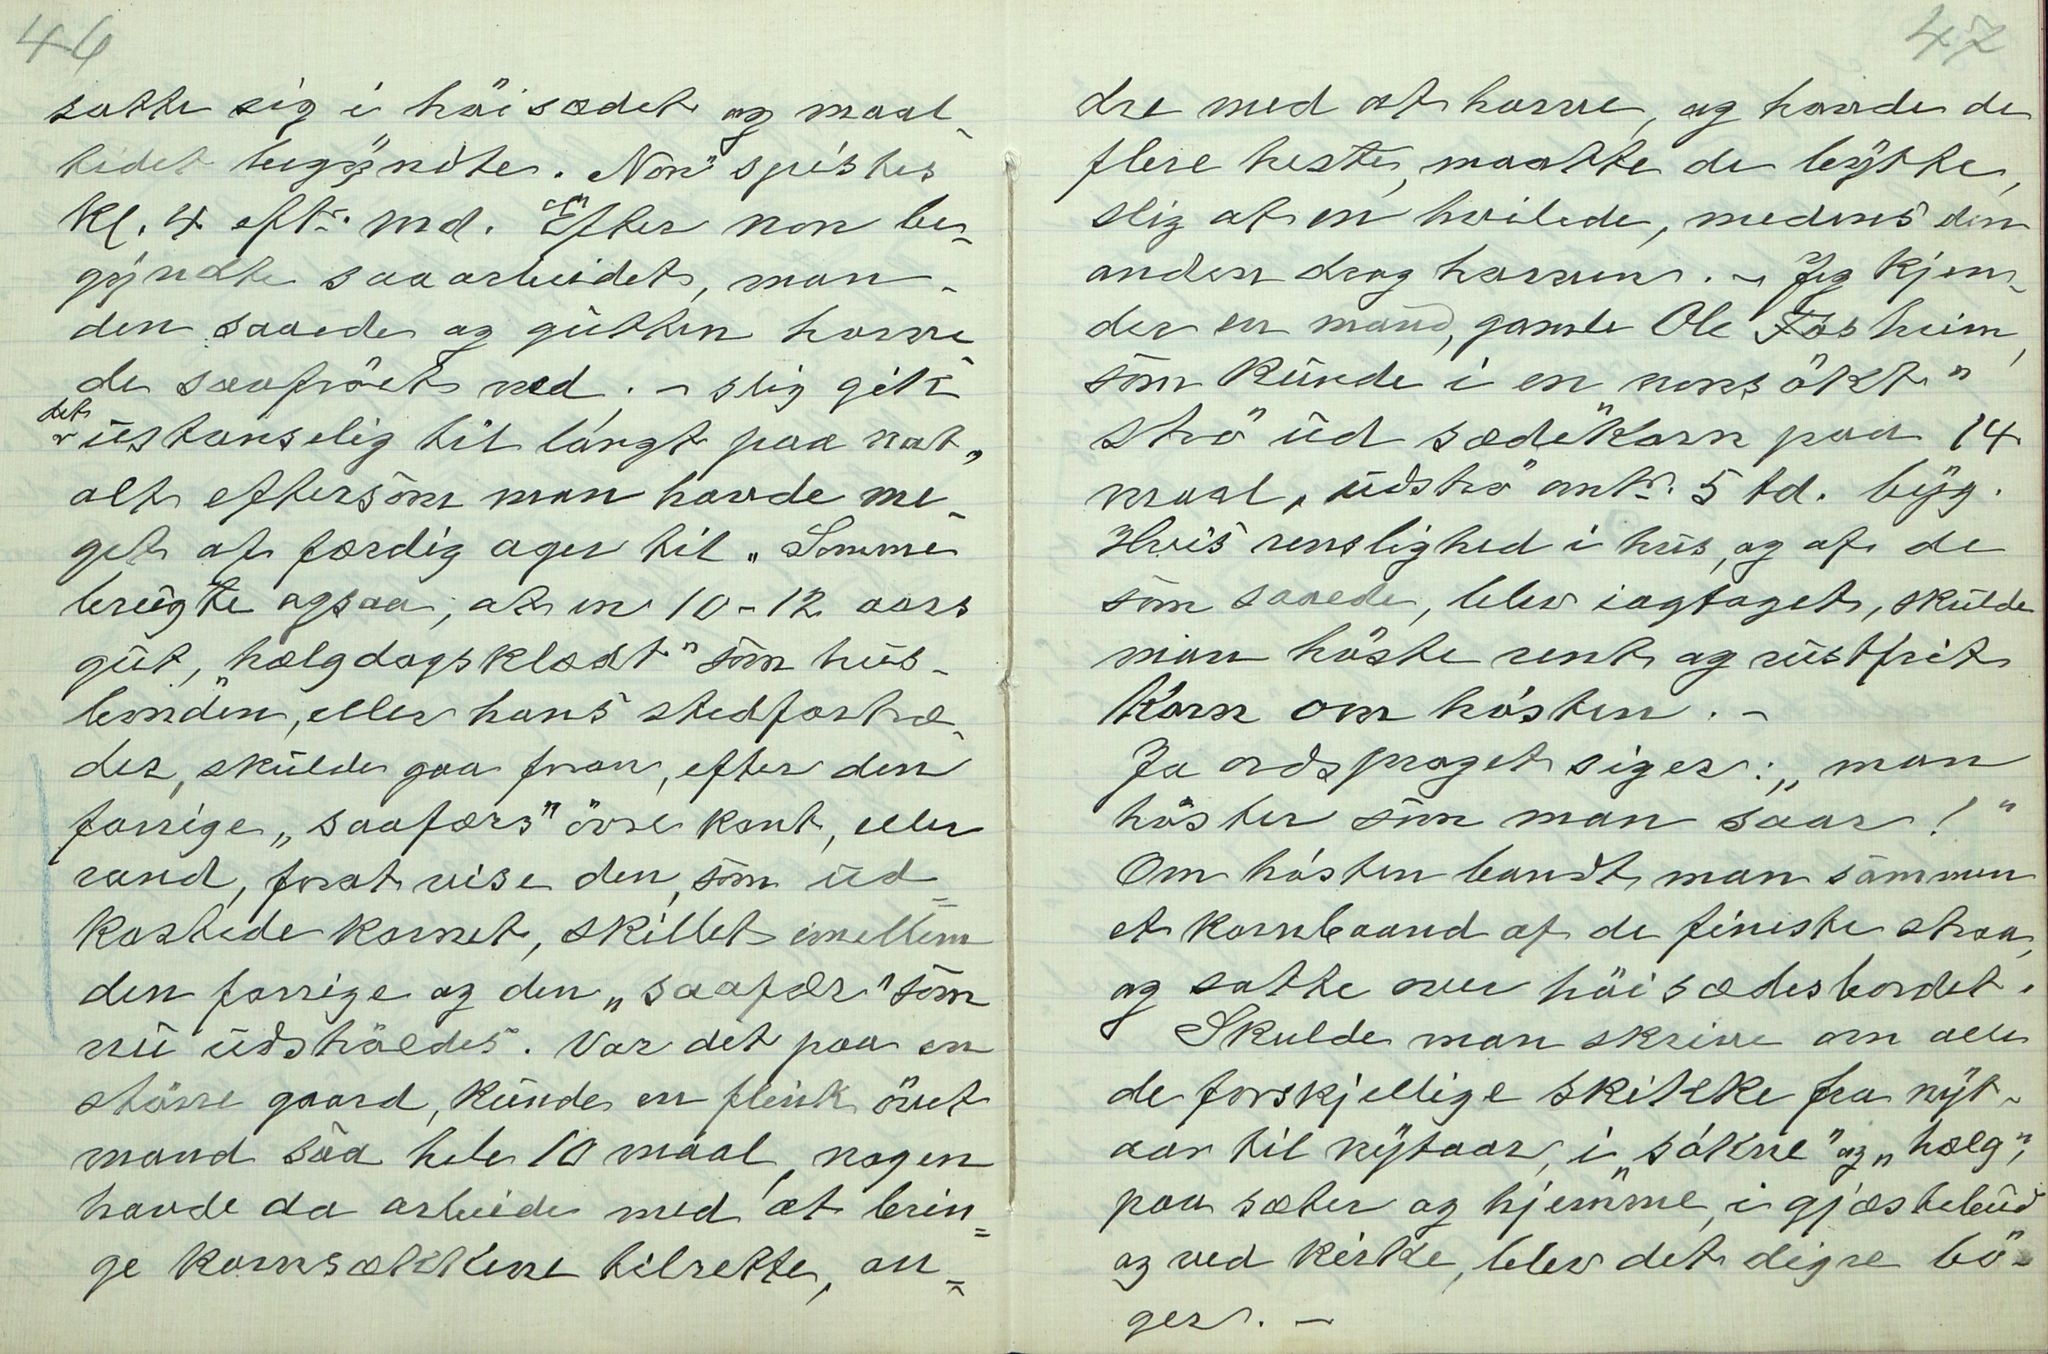 46
satte sig i höisædet og maal-
tidet begyndte. Non" spistes
kl. 4 eftr. md. "Efter non be-
gyndte saaarbeidet, man-
den saaede og gutten harve-
de saafröet ned. - slig gik
det ustanselig til langt paa nat,
alt eftersom man havde me-
get af færdig ager til. Somme
brugte ogsaa, at en 10-12 aars
gut, "hælgdagsklædt" som hus-
bonden, eller hans stedfortræ-
der, skulde gaa foran, efter den
forrige „saafærs" övre kant, eller
rand, forat vise den, som ud-
kastede kornet, skillet imellem
den forrige og den „saafær" som
nu udshöldes. Var det paa en
större gaard, kunde en flink övet
mand saa hele 10 maal, nogen
havde da arbeide med at brin-
ge kornsækkene tilrette, an-
47
dre med at harve, og havde de
flere heste, maatte de bytte,
slig at en hvilede, medens den
anden drog harven. - Jeg kjen-
der en mand, gamle Ole Fosheim,
som kunde i en nonsökt"
strö ud sædekorn paa 14
maal, udströ antr. 5 td. byg.
Hvis renslighed i hus, og af de
som saaede, blev iagtaget, skulde
man höste rent og rustfrit
korn om hösten. -
Ja ordsproget siger: „man
höster som man saar!"
Om hösten bandt man sammen
et kornbaand af de fineste straa,
og satte over höisædesbordet.
Skulde man skrive om alle
de forskjellige skikke fra nyt-
aar til nytaar, i „sökne" og „hælg",
paa sæter og hjemme, i gjæstebud
og ved kirke, blev det digre bö-
ger. -